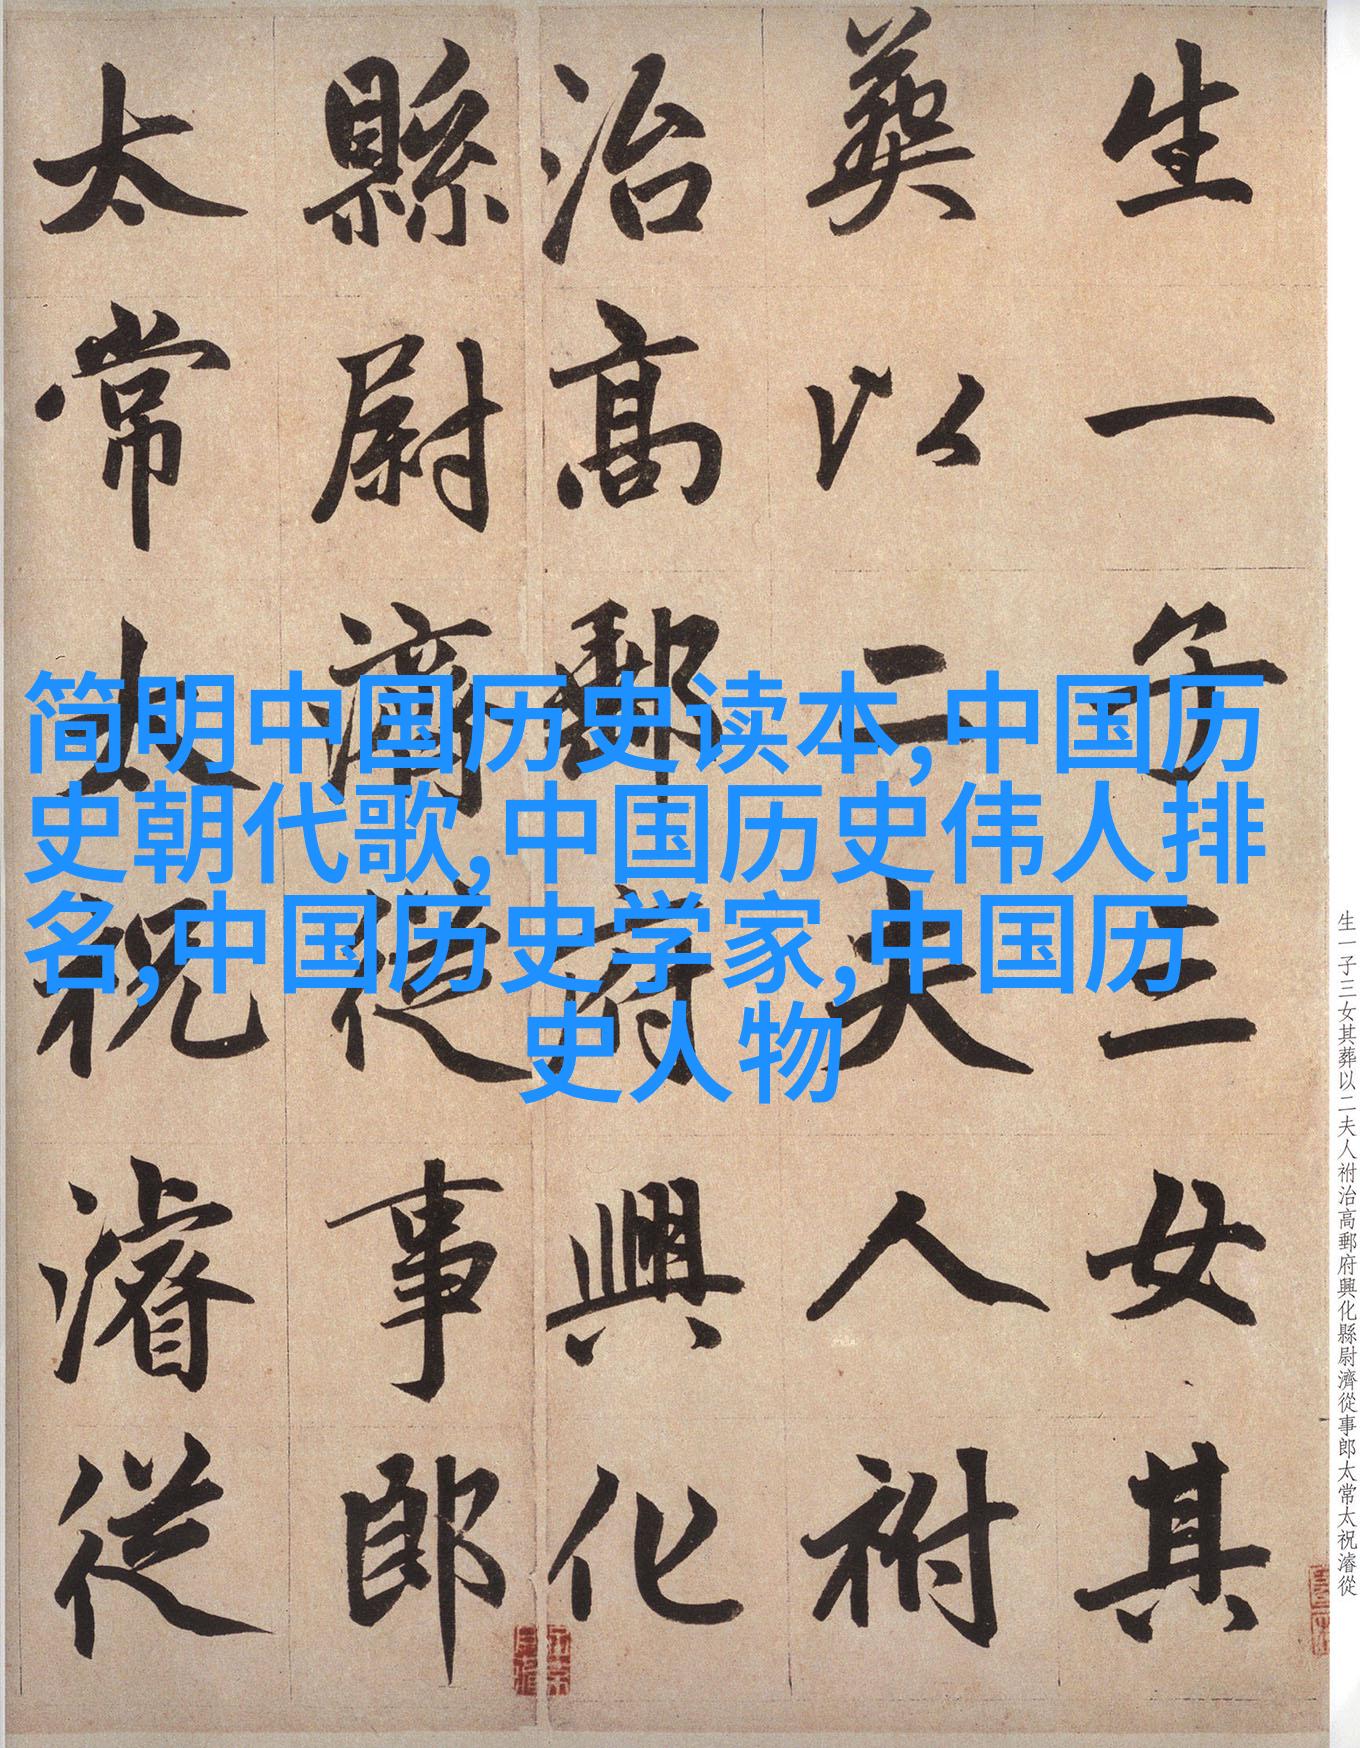 生一子三女其
葬以二夫人祔
治高郵府興化
縣尉濟從事郎
太常太祝濬從
简明中国历史读本,中国历
史朝代歌,中国历史伟人排
名,中国历史学家,中国历
史人物
生一子三女其葬以二夫人祔治高郵府興化縣尉濟從事郎太常太祝濬從